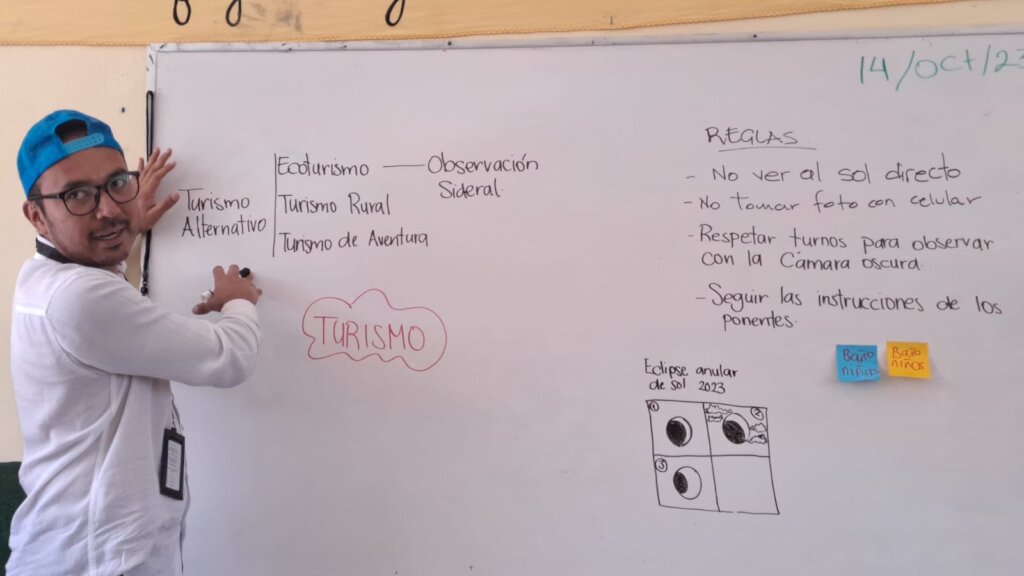 14/oct/23
Turismo
Alternativo
Ecoturismo — Observación
Sideral.
Turismo Rural
Turismo de Aventura
TURISMO
REGLAS
- No ver al sol directo
- No tomar foto con celular
- Respetar turnos para observar
con la Cámara oscura.
- Seguir las instrucciones de los
ponentes.
Baño
niñas
Baño
niños
Eclipse anular
de sol 2023
1
2
3